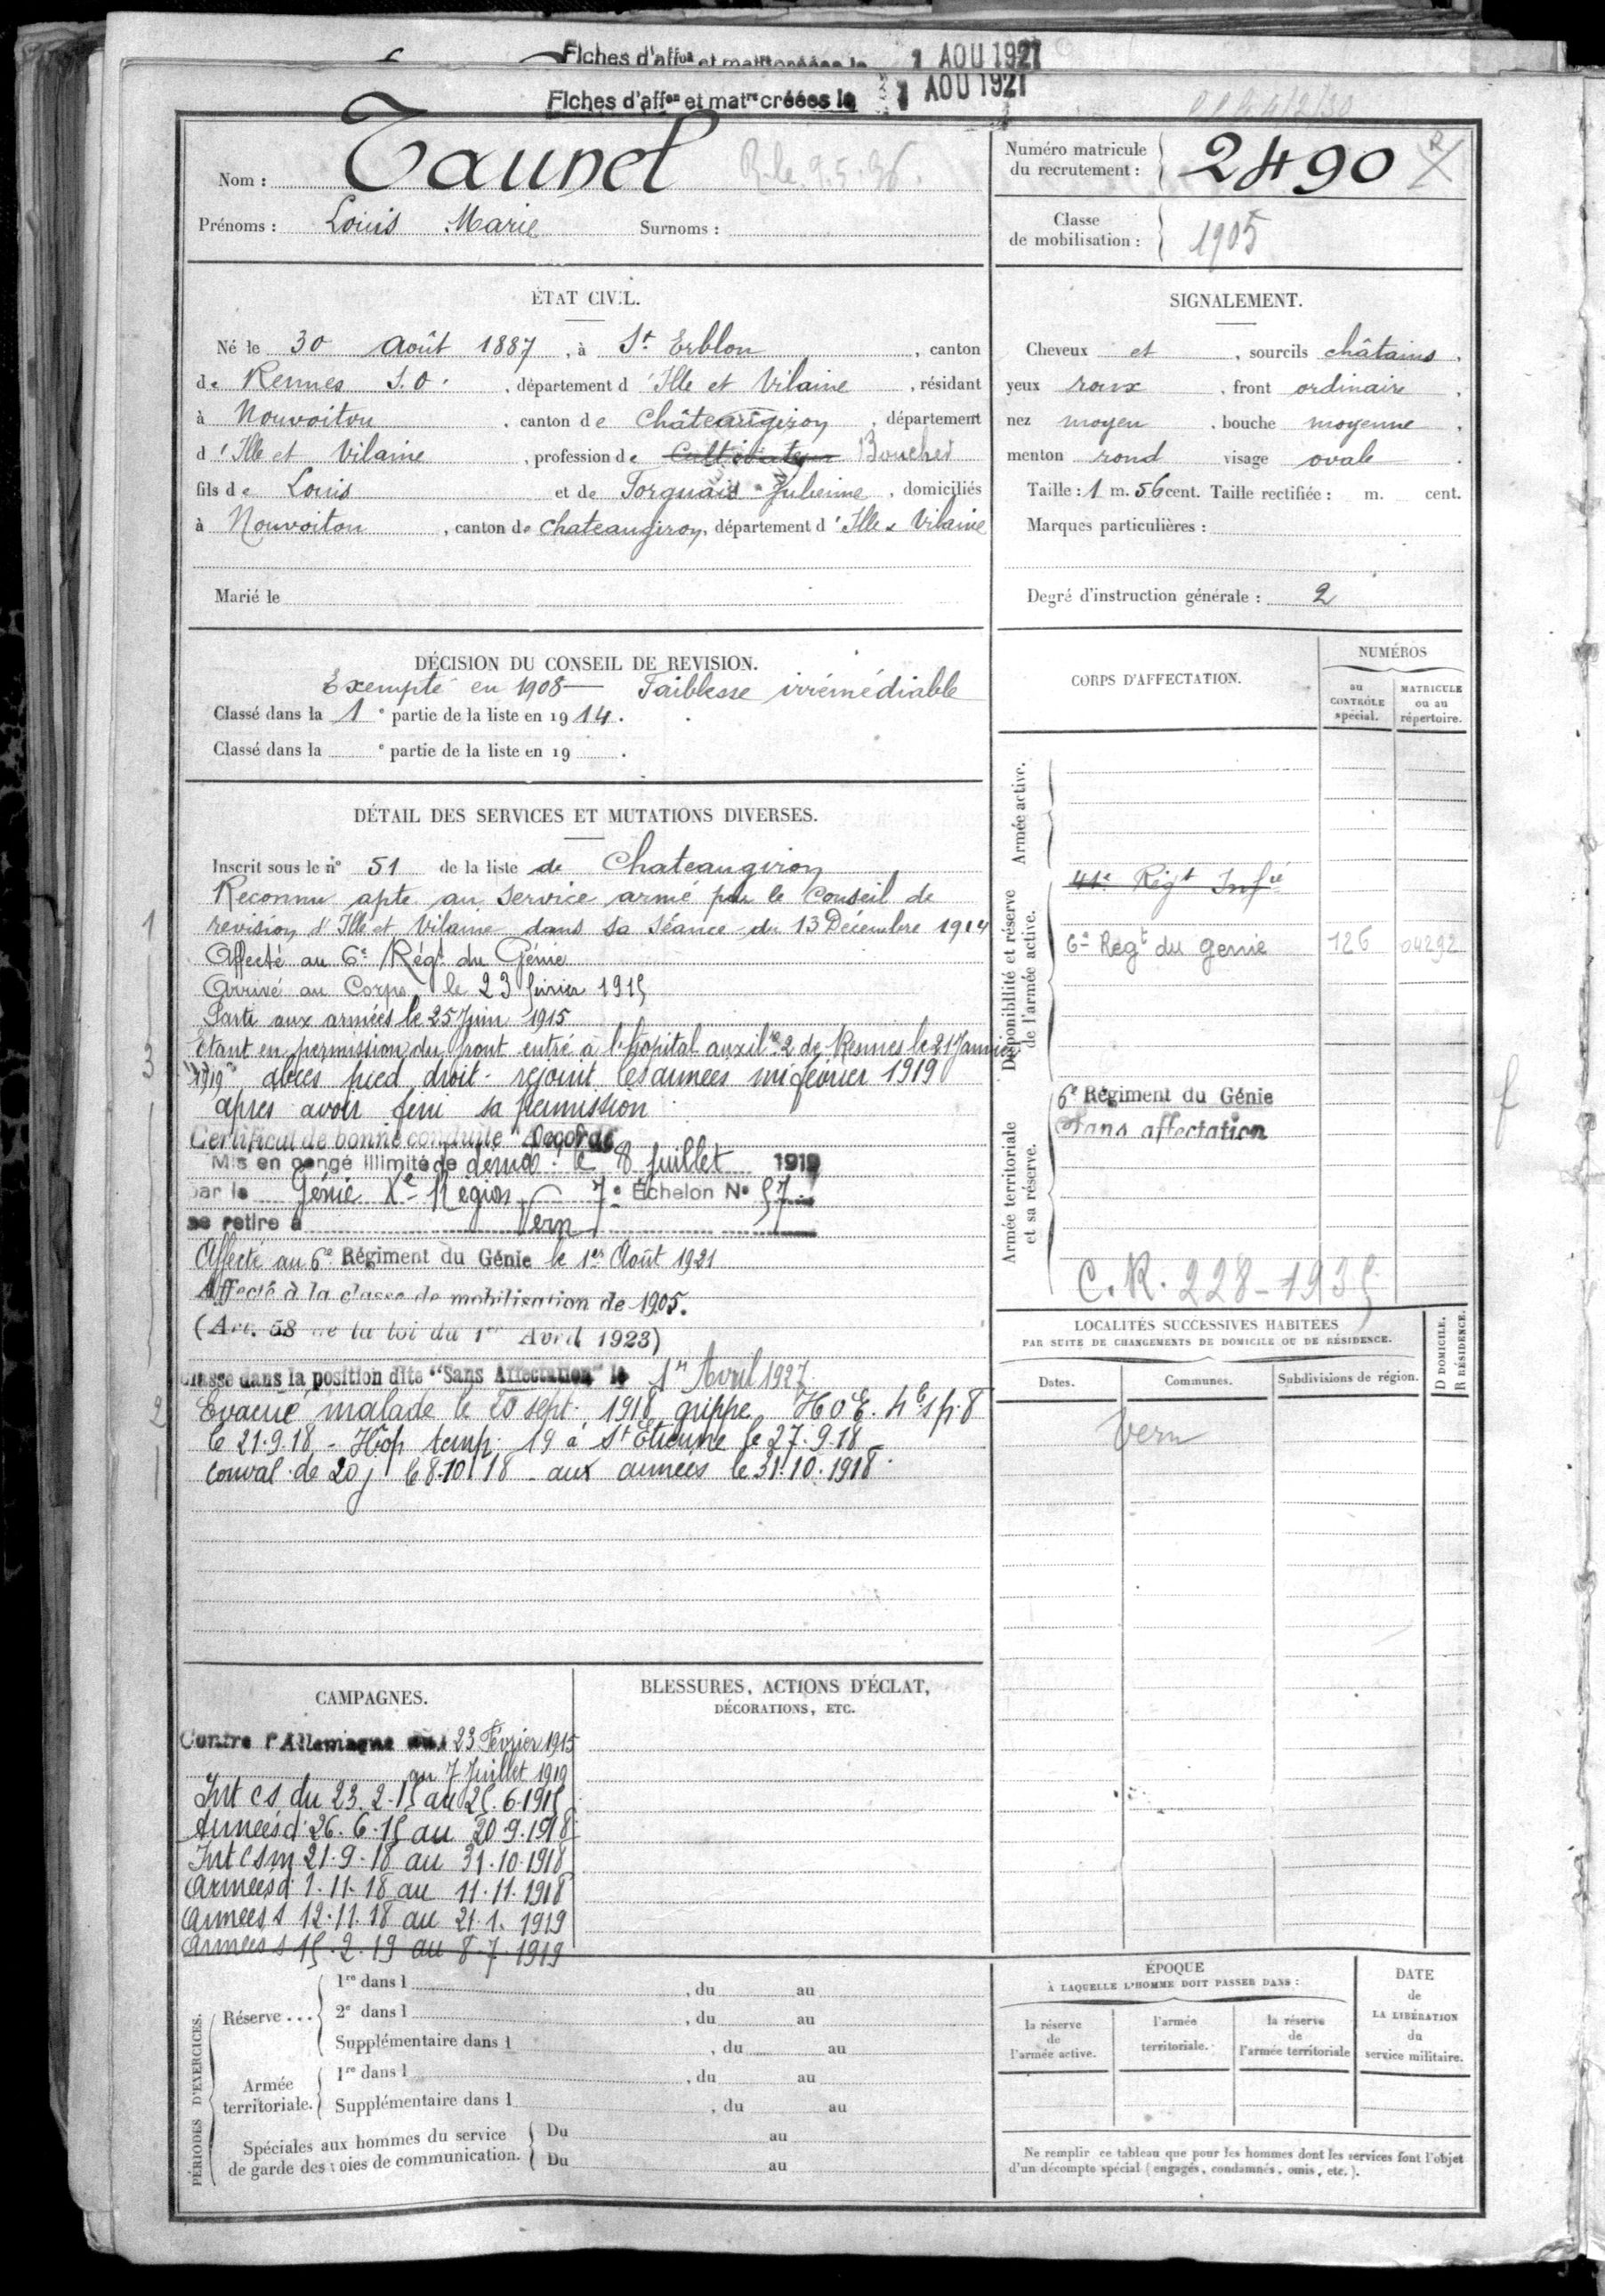 Fiches d'aff et matr créées le 1 AOU 1921
Fiches d'affon et matre créées le 1 AOU 1921
Nom : Taunel R. le 9.5.36.
Prénoms : Louis Marie Surnoms :
Numéro matricule du recrutement : 2490
Classe de mobilisation : 1905
ÉTAT CIVIL.
Né le 30 Août 1887, à St Erblon, canton
de Rennes S.O., département d'Ille et Vilaine, résidant
à Nouvoitou, canton de Châteaugiron, département
d'Ille et Vilaine, profession de Cultivateur Boucher
fils de Louis et de Torquais Julienne, domiciliés
à Nouvoitou, canton de Chateaugiron, département d'Ille & Vilaine
Marié le
SIGNALEMENT.
Cheveux et , sourcils châtains,
yeux roux, front ordinaire,
nez moyen, bouche moyenne,
menton rond visage ovale.
Taille : 1 m. 56 cent. Taille rectifiée : m. cent.
Marques particulières :
Degré d'instruction générale : 2
DÉCISION DU CONSEIL DE REVISION.
Exempté en 1908 — Faiblesse irrémédiable
Classé dans la 1e partie de la liste en 1914.
Classé dans la e partie de la liste en 19 .
DÉTAIL DES SERVICES ET MUTATIONS DIVERSES.
Inscrit sous le n° 51 de la liste de Chateaugiron
Reconnu apte au service armé par le Conseil de
1 revision d'Ille et Vilaine dans sa séance du 13 Décembre 1914
Affecté au 6e Régt du Génie
Arrivé au Corps le 23 février 1915
Parti aux armées le 25 Juin 1915
Etant en permission du front entré à l'hopital auxilre 2 de Rennes le 21 Janvier
3 1919 abcès pied droit - rejoint les armées mi février 1919
après avoir fini sa permission
Certificat de bonne conduite Accordé
Mis en congé illimité de démob. le 8 Juillet 1919
par le Génie Xe Région 7e Échelon N° 57
se retire à Vern
Affecté au 6e Régiment du Génie le 1er Août 1921
Affecté à la classe de mobilisation de 1905.
(Art. 58 de la loi du 1er Avril 1923)
Classé dans la position dite "Sans Affectation" le 1er Avril 1927
2 Evacué malade le 20 sept. 1918 grippe H.O.E.
le 21.9.18 - Hôp temp. 19 à St Etienne le 27.9.18 -
conval. de 20 j le 8.10.18 - aux armées le 31.10.1918.
CORPS D'AFFECTATION.
NUMÉROS
au CONTRÔLE spécial.
MATRICULE ou au répertoire.
Armée active.
Disponibilité et réserve de l'armée active.
41e Régt Infie
6e Régt du Génie 126 04292
Armée territoriale et sa réserve.
6e Régiment du Génie
Sans affectation
C.R. 228-1935
LOCALITÉS SUCCESSIVES HABITÉES
PAR SUITE DE CHANGEMENTS DE DOMICILE OU DE RÉSIDENCE.
D DOMICILE.
R RÉSIDENCE.
Dates. Communes. Subdivisions de région.
Vern
CAMPAGNES.
Contre l'Allemagne du 23 Février 1915
au 7 Juillet 1919
Int cs du 23.2.15 au 25.6.1915
Armées d. 26.6.15 au 20.9.1918
Int csm 21.9.18 au 31.10.1918
Armées d. 1.11.18 au 11.11.1918
Armées s 12.11.18 au 21.1.1919
Armées s 15.2.19 au 8.7.1919
BLESSURES, ACTIONS D'ÉCLAT,
DÉCORATIONS, ETC.
PÉRIODES D'EXERCICES.
Réserve...
1re dans l , du au
2e dans l , du au
Supplémentaire dans l , du au
Armée territoriale.
1re dans l , du au
Supplémentaire dans l , du au
Spéciales aux hommes du service
de garde des voies de communication.
Du au
Du au
ÉPOQUE
À LAQUELLE L'HOMME DOIT PASSER DANS :
la réserve de l'armée active.
l'armée territoriale.
la réserve de l'armée territoriale
DATE de LA LIBÉRATION du service militaire.
Ne remplir ce tableau que pour les hommes dont les services font l'objet
d'un décompte spécial (engagés, condamnés, omis, etc.).